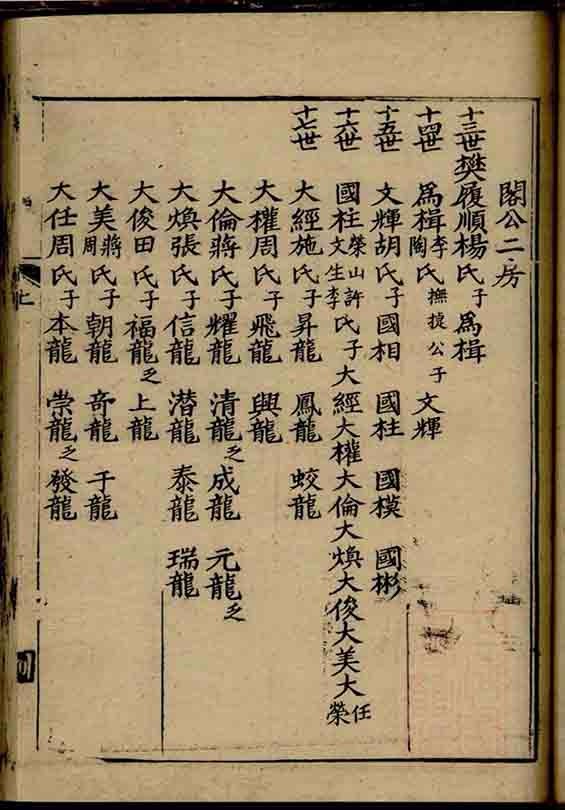 閣公二房
十三世樊履順楊氏子為楫
十四世　為楫李陶氏撫㨗公子文輝
十五世　文輝胡氏子國相　國柱　國模　國彬
十六世　國柱榮山許文生李氏子大經大權大倫大煥大俊大美大任榮
十七世　大經施氏子昇龍　鳳龍　蛟龍
大權周氏子飛龍　興龍
大倫蔣氏子耀龍　清龍乏　成龍　元龍乏
大煥張氏子信龍　潛龍　泰龍　瑞龍
大俊田氏子福龍乏　上龍
大美蔣周氏子朝龍　奇龍　于龍
大任周氏子本龍　崇龍乏　發龍